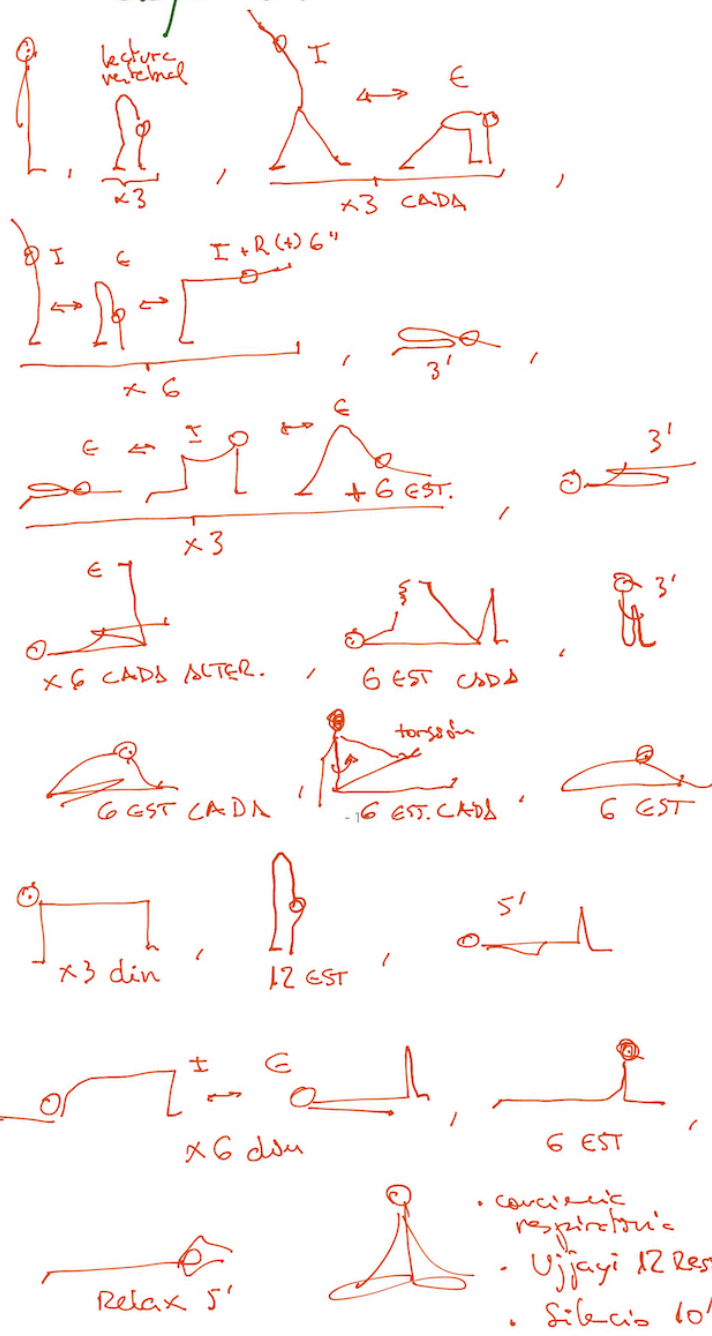 lectura
vertebral
I
E
x3
x3 CADA
I
E
I + R(+) 6"
x 6
3'
E
I
E
+ 6 EST.
x3
3'
E
x 6 CADA ALTER.
6 EST CADA
3'
torssión
6 EST CADA
6 EST. CADA
6 EST
x3 din
12 EST
5'
I
E
x 6
6 EST
Relax 5'
• conciencia
respiratoria
• Ujjayi 12 Res
• Silencio 10'